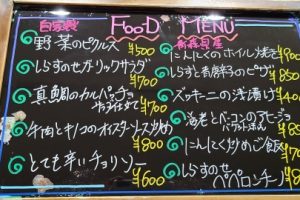 自家製 FOOD MENU
野菜のピクルス ¥500
しらすのせガーリックサラダ ¥700
真鯛のカルパッチョ
¥700
牛肉とキノコのオイスターソース炒め
¥800
とても辛いチョリソー
¥600
にんにくのホイル焼き
しらすと青唐辛子のピザ
¥850
ズッキーニの浅漬け
¥400
海老とベーコンのアヒージョ
バケット
にんにく炒めご飯
しらすのせ
ペペロンチーノ